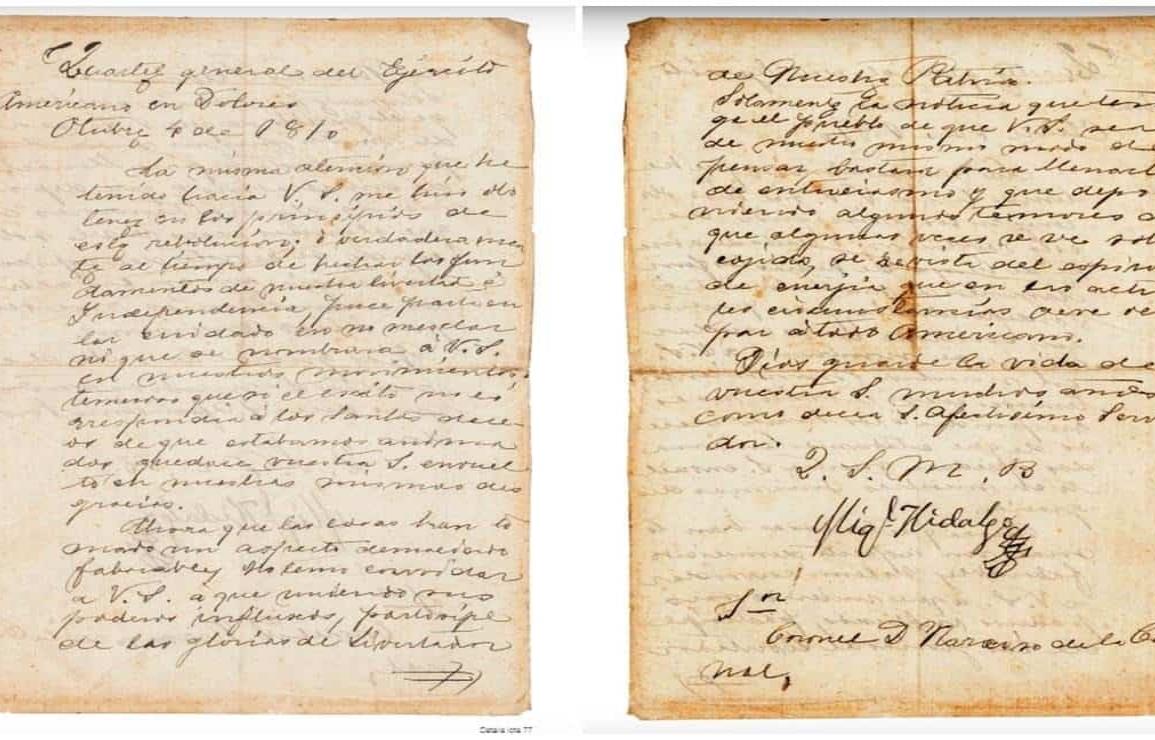 Quartel general del Ejército
Americano en Dolores
Otubre 4 de 1810
La misma atención que he
tenido hacia V. S. me hiso
en los principios de
esta rebolución; ó verdaderamen
te al tiempo de hechar los fun
damentos de nuestra livertá é
Independencia, puce particu
lar cuidado en no mesclar
ni que se nombrara á V. S.
en nuestros movimientos,
temeroso que si el exito no co
rrespondia á los santos dece
os de que estabamos anima
dos quedace vuestra S. envuel
to en nuestras mismas des
gracias.
Ahora que las cosas han to
mado un aspecto demaciado
faborable, no temo convidar
a V. S. a que uniendo sus
poderoso influxos, participe
de las glorias de Livertador
Catálogo 77
de Nuestra Patria.
Solamente la noticia que ten
ga el pueblo de que V. S. es
de nuestro mismo modo de
pensar bastará para llenarl
de entuciasmo y que depo
niendo algunos temores de
que algunas veces se ve sob
cojido, se revista del espiri
de energia que en las actu
les circunstancias deve
á todo Americano.
Dios guarde la vida de
vuestra S. muchos años
como decea S. Afectisimo Serv
dor.
Q. S. M. B
Migl. Hidalgo
Sor
Coronel D Narciso de la Ca
nal,